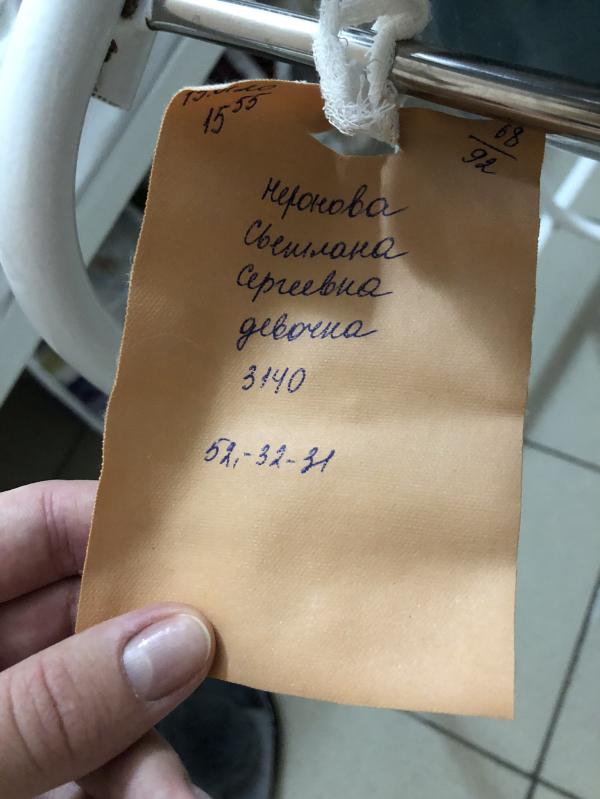 15 55
68
92
Неронова
Светлана
Сергеевна
девочка
3140
52,-32-31